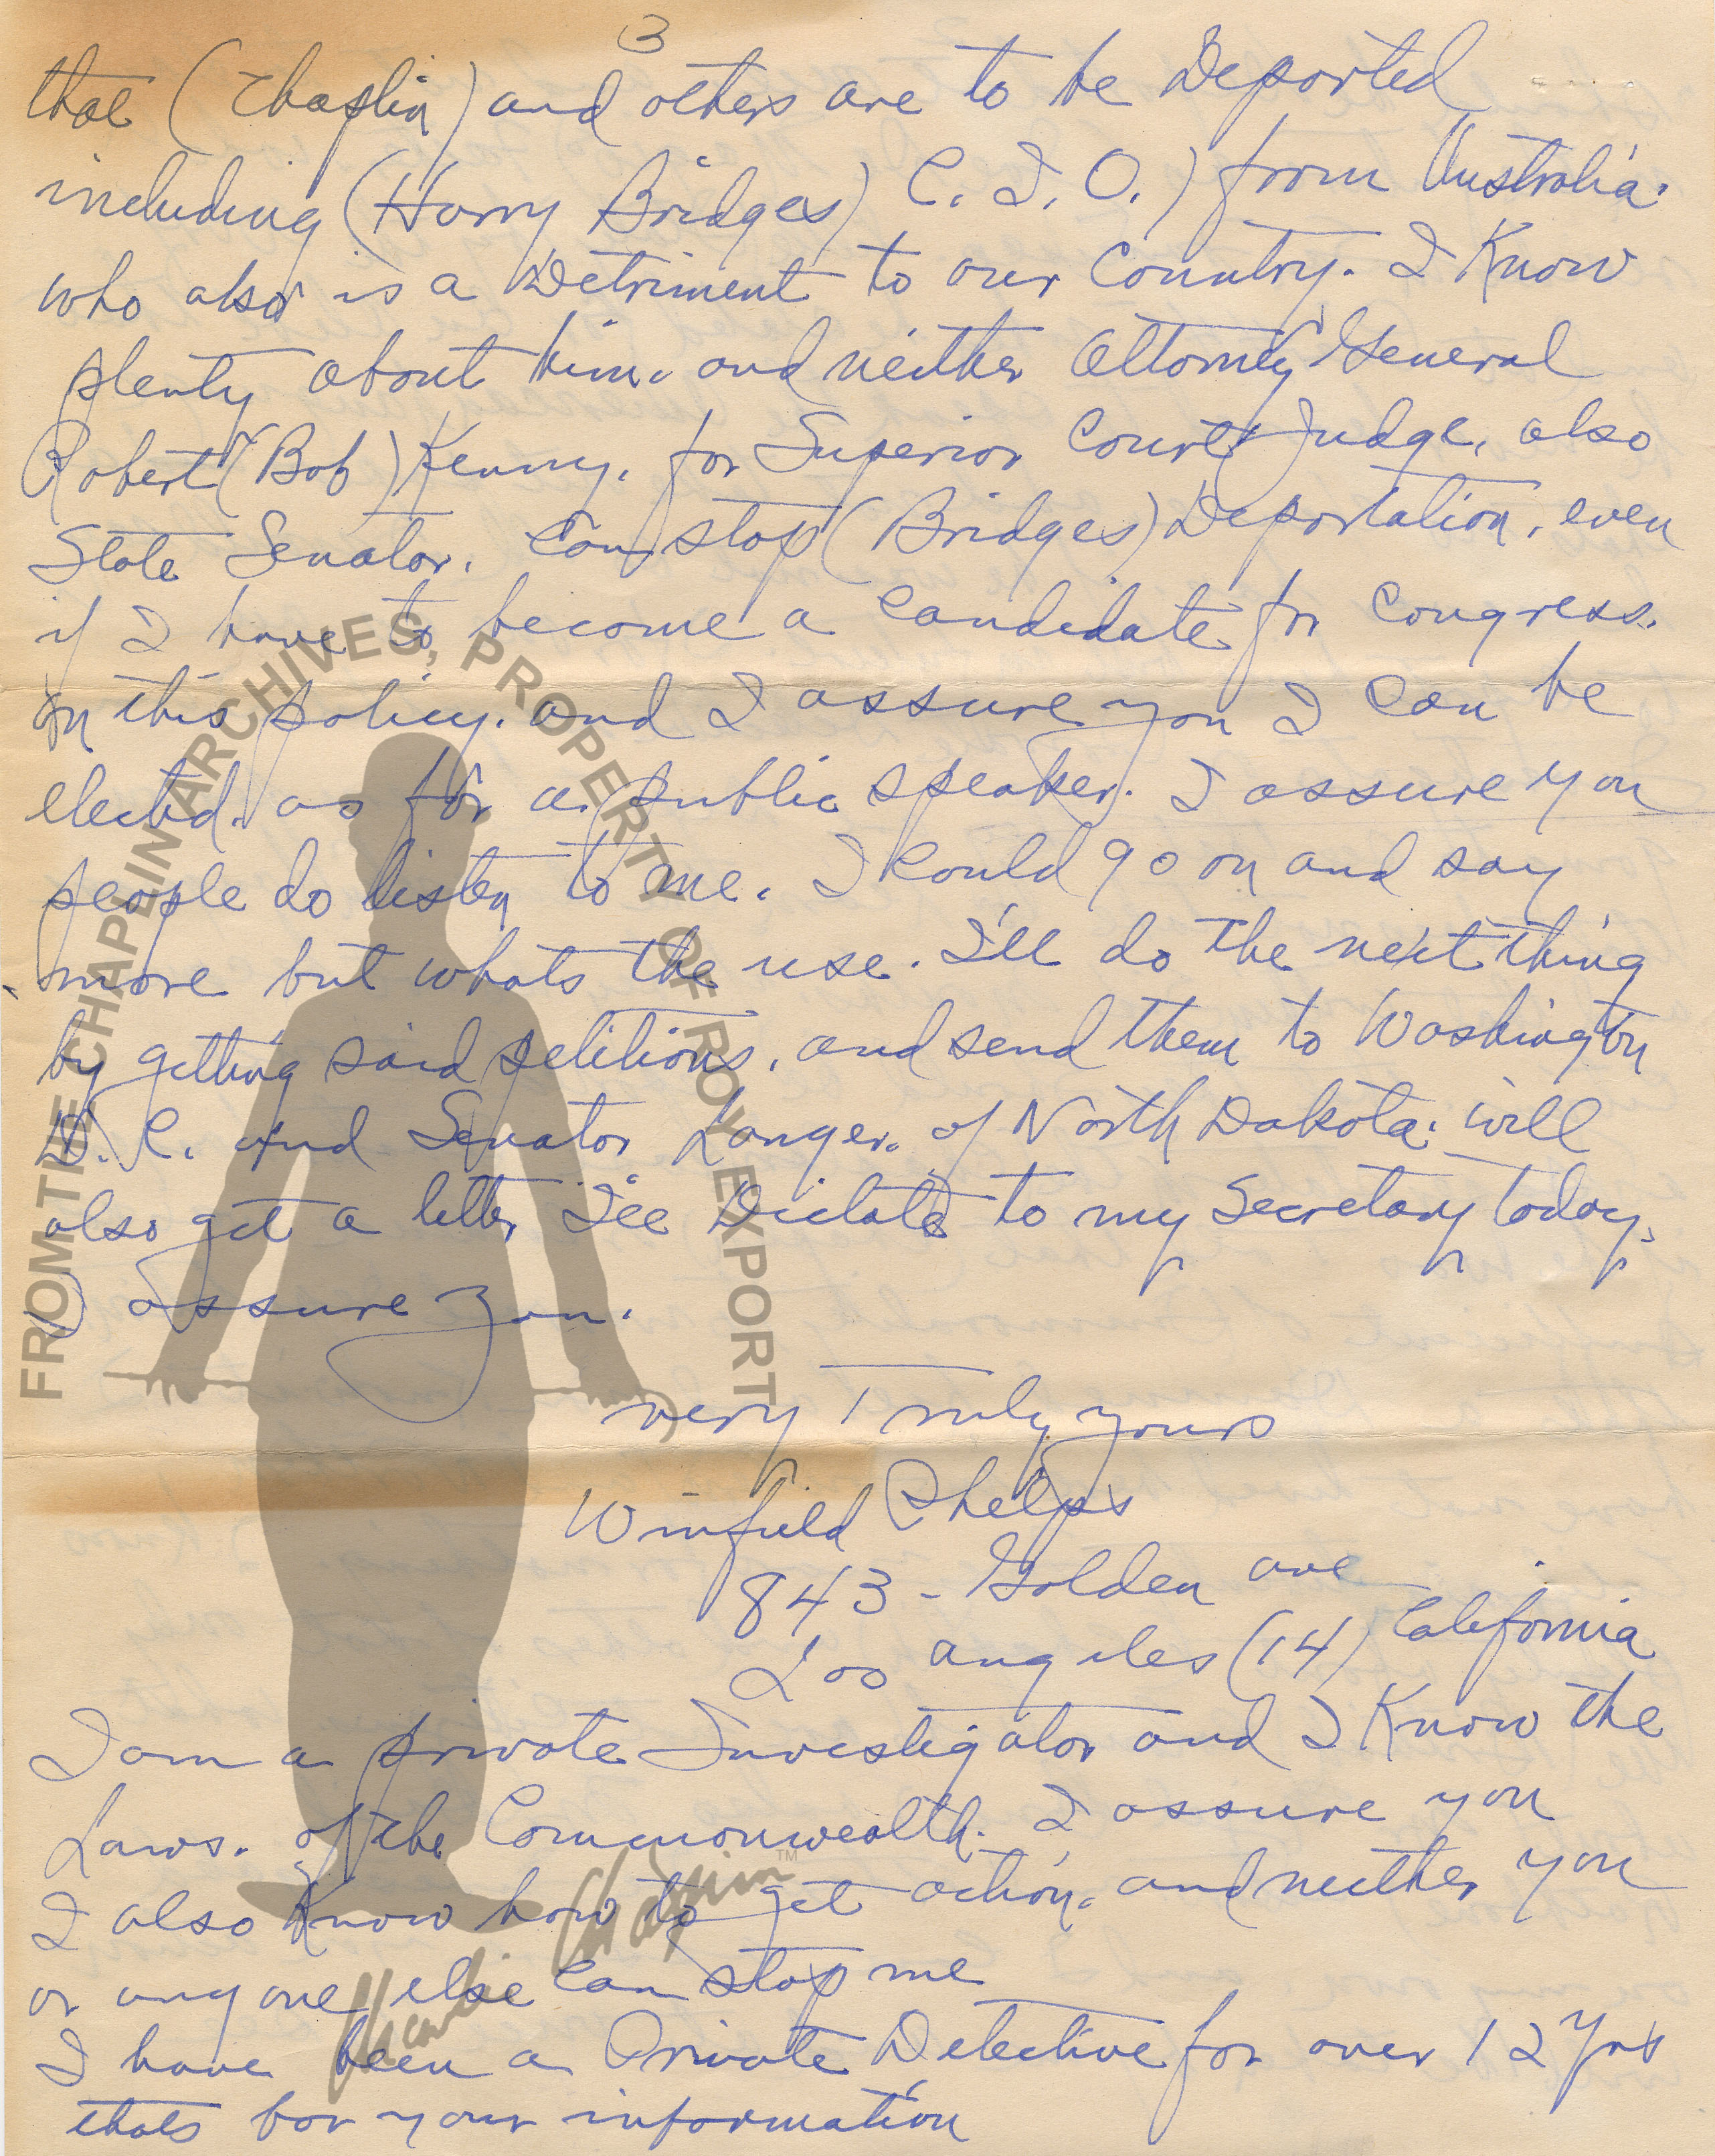 3
that (Chaplin) and others are to be Deported
including (Harry Bridges) C. I. O.) from Australia.
who also is a Detriment to our Country. I Know
plenty about him. and neither Attorney General
Robert (Bob) Kenny. for Superior Court Judge. also
State Senator. can stop (Bridges) Deportation. even
if I have to become a Candidate for Congress.
on this policy. and I assure you I can be
elected. as for a public speaker. I assure you
people do listen to me. I could go on and say
more but whats the use. I'll do the next thing
by getting said petitions. and send them to Washington
D. C. and Senator Langer. of North Dakota. will
also get a letter I'll Dictate to my Secretary today.
I assure you.
very Truly yours
Winfield Phelps
843 - Golden ave
Los angeles (14) California
I am a private Investigator and I Know the
Laws. of the Commonwealth. I assure you
I also Know how to get action. and neither you
or any one else can stop me
I have been a Private Detective for over 12 yrs
thats for your information
FROM THE CHAPLIN ARCHIVES, PROPERTY OF ROY EXPORT
Charlie Chaplin™